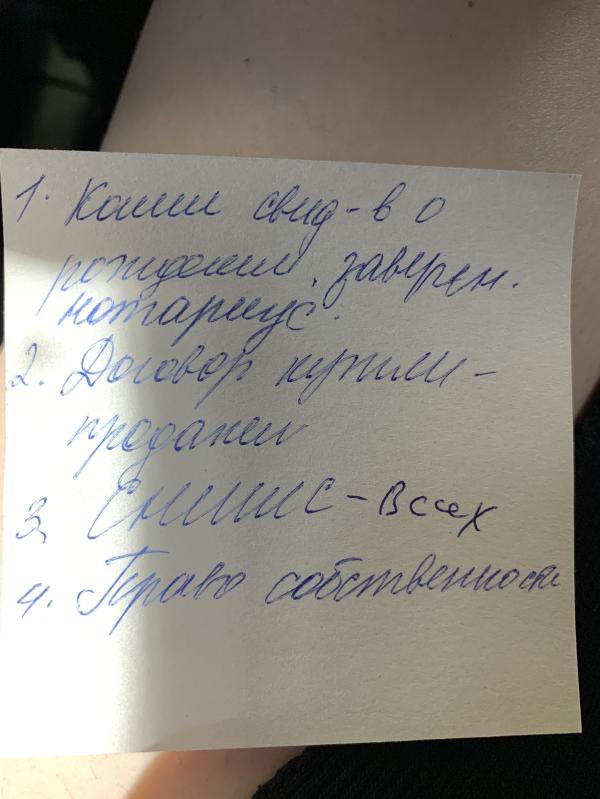 1. Копии свид-в о
рождении, заверен.
нотариус.
2. Договор купли-
продажи
3. СНИЛС - всех
4. Право собственности